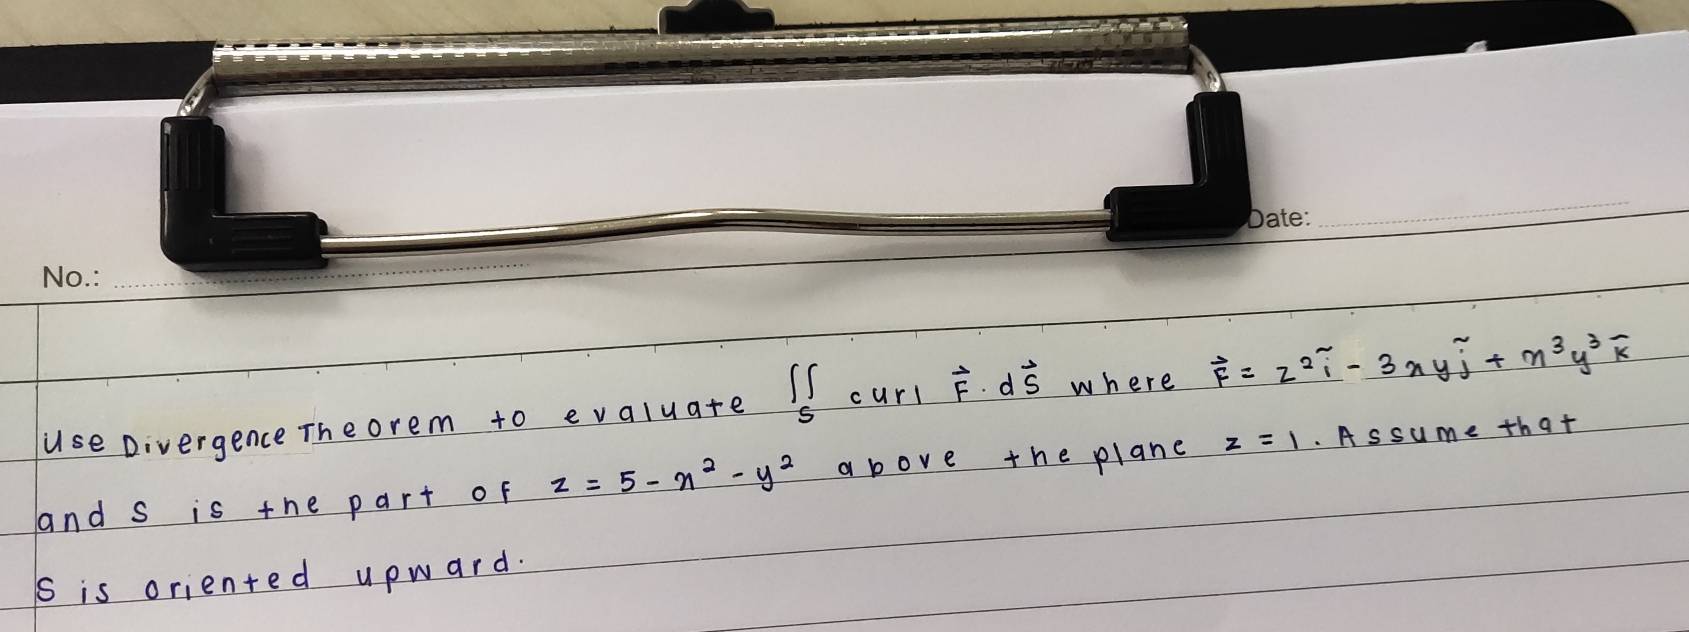 Date:
No.:
Use Divergence Theorem to evaluate ∬_S curl F⃗ · dS⃗ where F⃗ = z²ĩ - 3xyj̃ + x³y³k̃
and S is the part of z = 5 - x² - y² above the plane z = 1. Assume that
S is oriented upward.